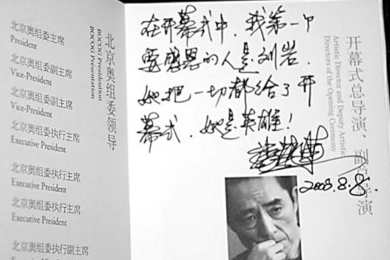 北京奥组委领导
BOCOG Presentation
北京奥组委主席
President
北京奥组委副主席
Vice-President
北京奥组委副主席
Vice-President
北京奥组委执行主席
Executive President
北京奥组委执行主席
Executive President
北京奥组委执行主席
Executive President
北京奥组委执行副主席
在开幕式中，我第一个
要感恩的人是刘岩，
她把一切都给了开
幕式，她是英雄！
2008.8.8.
开幕式总导演、副总导演
Artistic Director and Deputy Artistic
Directors of the Opening Ceremony